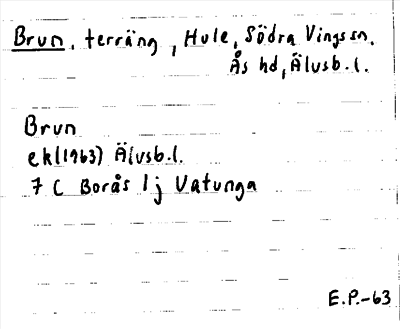 Brun, terräng, Hule, Södra Vings sn.
Ås hd, Älvsb. l.
Brun
ek(1963) Älvsb. l.
7 C Borås 1 j Vatunga
E.P.-63